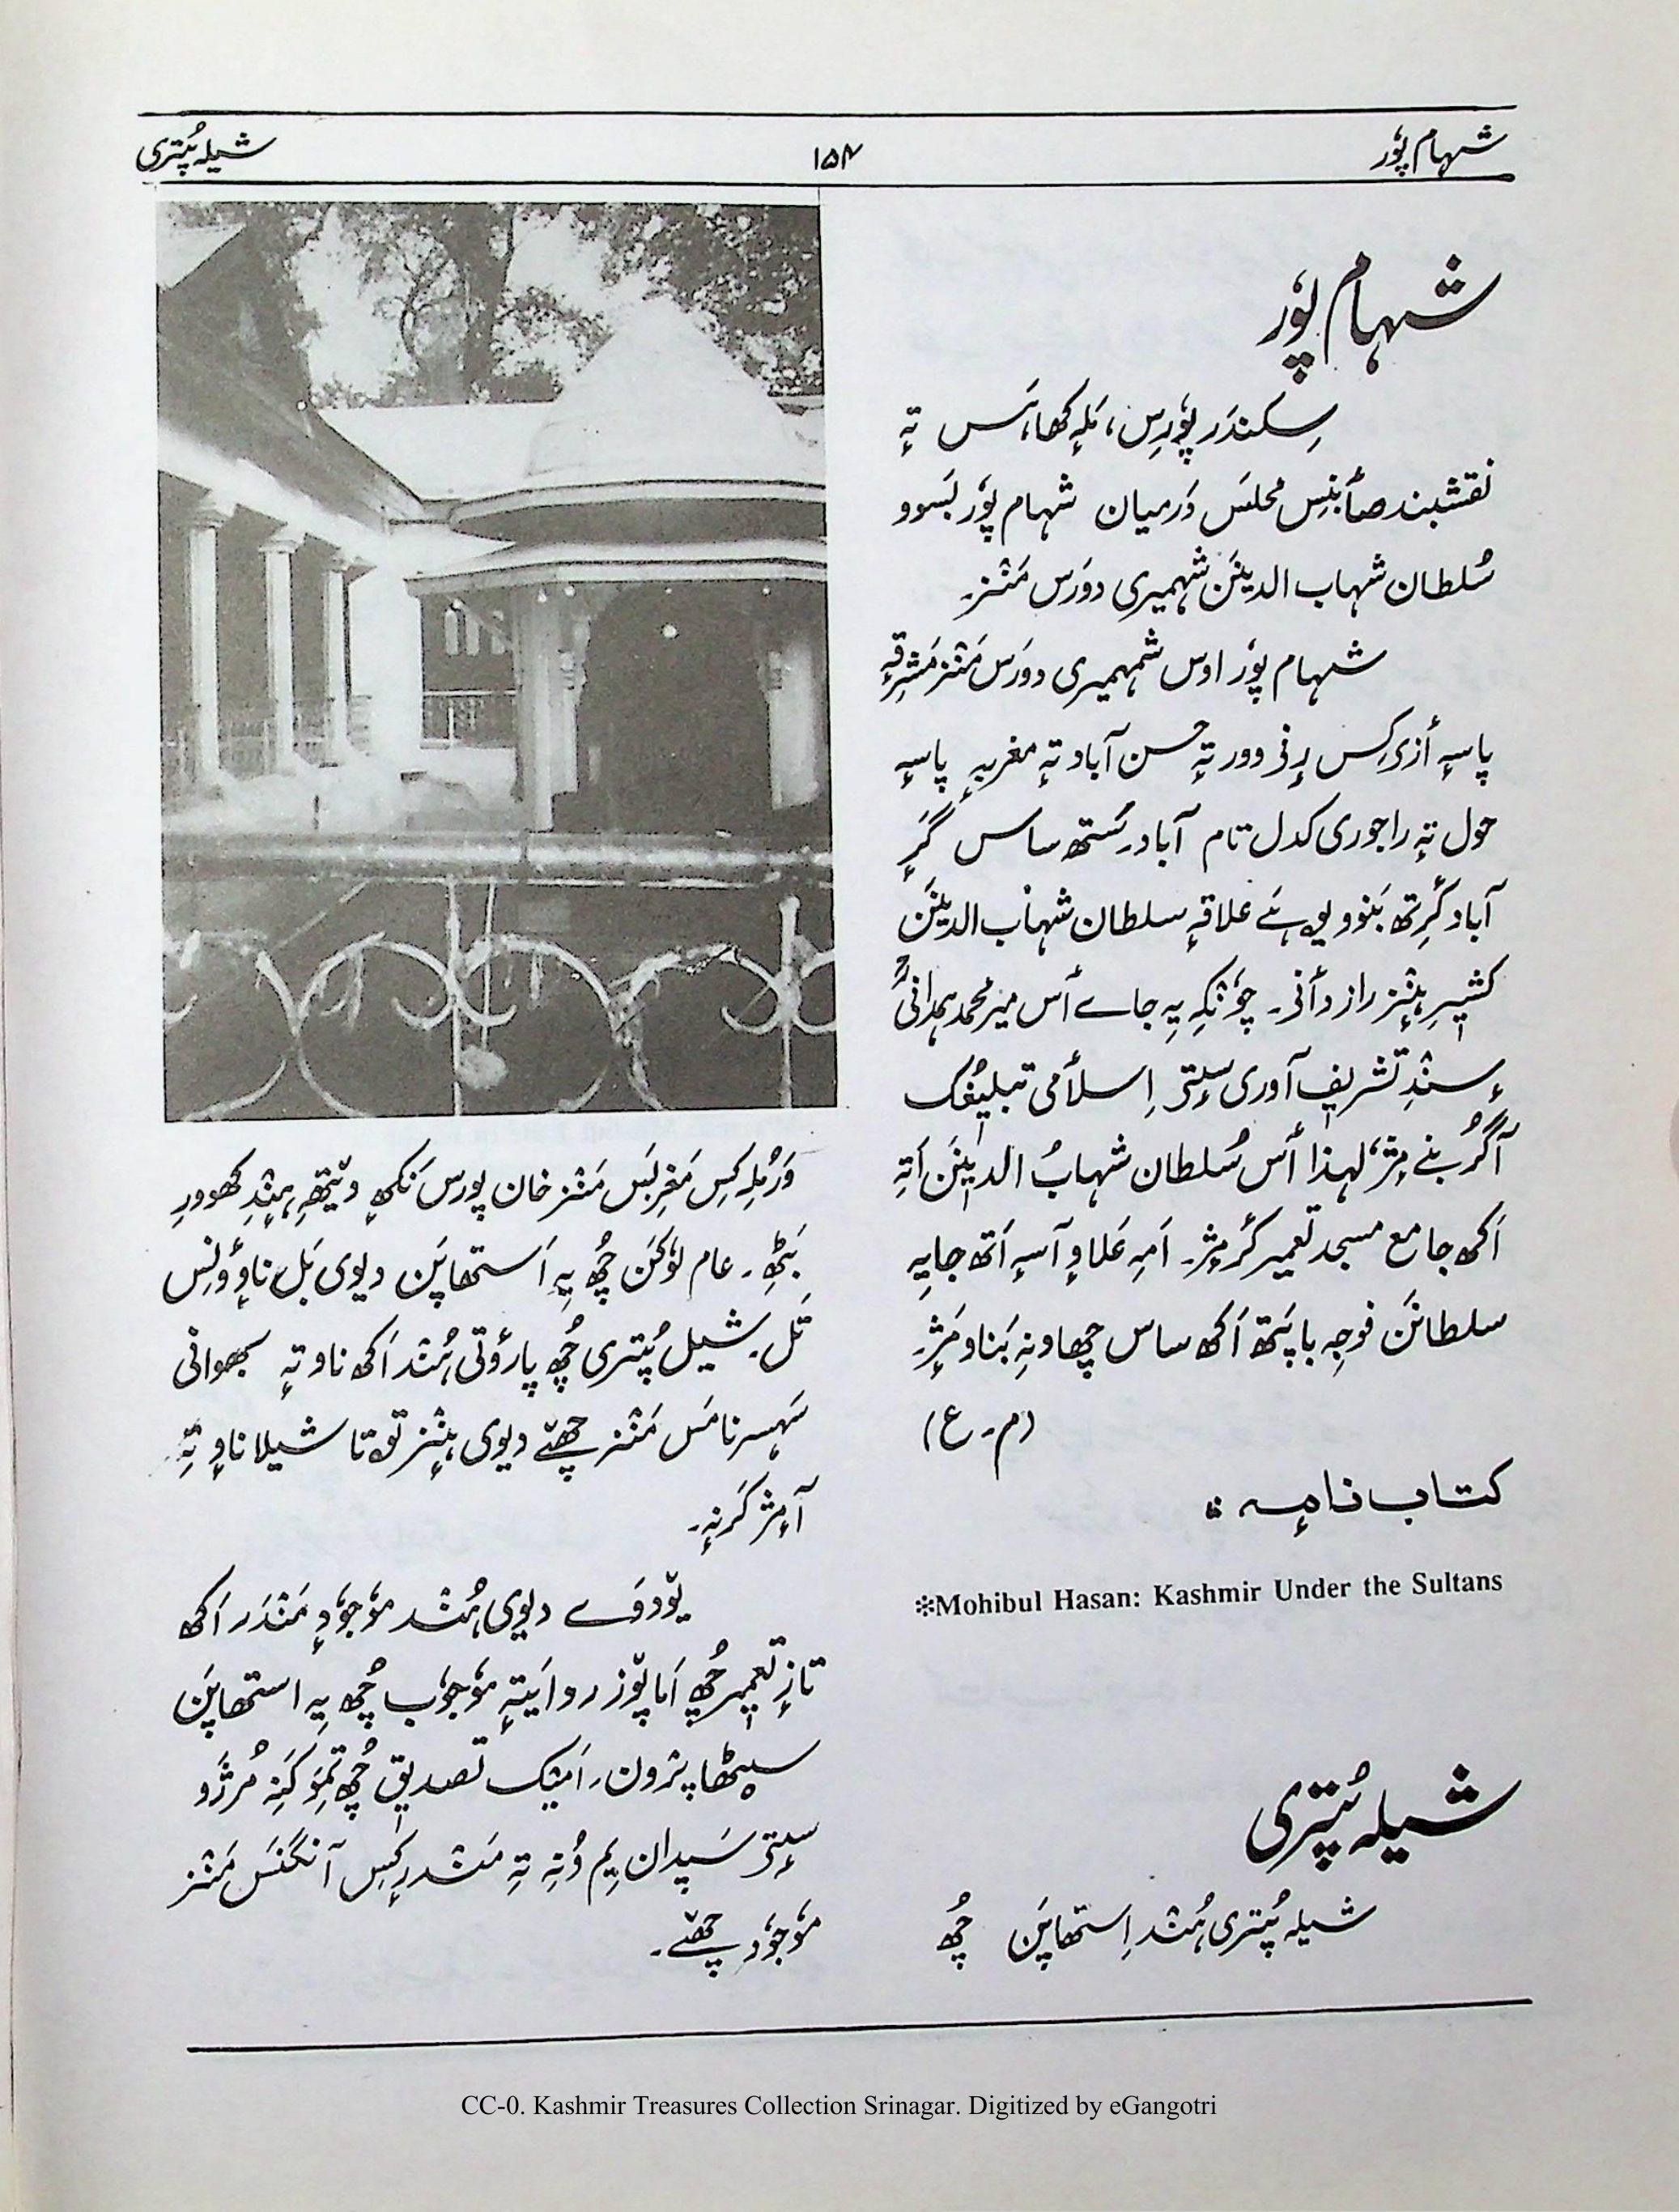 شہام پوٗر
۱۵۴
شیلہ پُتری
شہام پوٗر
سِکندَر پوٗرس، مَلہٕ کھاہَس تہٕ
نقشبند صٲبنِس محلس دَرمیان شہام پوٗر بَسوو
سُلطان شہاب الدینَن شہمیری دورَس مَنٛز۔
شہام پوٗر اوس شہمیری دورَس مَنٛز مَشرِقہٕ
پاسہٕ أزی کِس رٕنی وور تہٕ حسن آباد تہٕ مغربہٕ پاسہٕ
حول تہٕ راجوری کدل تام آباد۔ شتھ ساس گَرٕ
آباد گٔرِتھ بَنوو یہِ ہے علاقہٕ سلطان شہاب الدینَن
کشیرِ ہٕنٛز راز دٲنی۔ چوٗنکہِ یہِ جاے أس میر محمد ہمدانیؒ
سٕنٛدِ تشریف آوری سٟتۍ اِسلٲمی تبلیٖغُک
آگُر بنے مٕژ، لہذا أس سُلطان شہابُ الدیٖنَن اَتہِ
اَکھ جامع مسجد تعمیر کٔر مٕژ۔ اَمہِ عَلاوٕ آسہٕ اَتھ جایہِ
سلطانَن فوجہِ باپَتھ اَکھ ساس چھاونہِ بَناو مَژٕ۔
(م۔ع)
کتاب نامہٕ :
❇Mohibul Hasan: Kashmir Under the Sultans
شیلہ پُتری
شیلہ پُتری ہُنٛد اِستھاپَن چُھ
وَرمُلہٕ کِس مَغرِبَس مَنٛز خان پورس نَکھہٕ ویٚتھہِ ہٕنٛدِ کھووُرِ
بَٹھِ۔ عام لوٗکَن چُھ یہِ اَستھاپَن دیوی بَل ناوٕ ؤنِس
تَل۔ شیل پُتری چُھ پارؤتی ہُنٛد اَکھ ناو تہٕ بھوانی
سَہسرنامَس مَنٛز چھےٚ دیوی ہٕنٛز تو تا شیلا ناوٕ تہِ
آمٕژ کَرنہٕ۔
یوٚدوَے دیوی ہُنٛد موٗجوٗدٕ مَنٛدَر اَکھ
تازٕ تعمیٖر چُھ اَما پوٚز روایتہٕ موٗجوٗب چُھ یہِ استھاپَن
سیٹھا پرٛون۔ اَمیٚک تصدیٖق چُھ تِمَو کَنہِ مُرژَو
سٟتۍ سَپدان یِم وُنہِ تہِ مَنٛدرٕکِس آنگنَس مَنٛز
موٗجوٗد چھےٚ۔
CC-0. Kashmir Treasures Collection Srinagar. Digitized by eGangotri